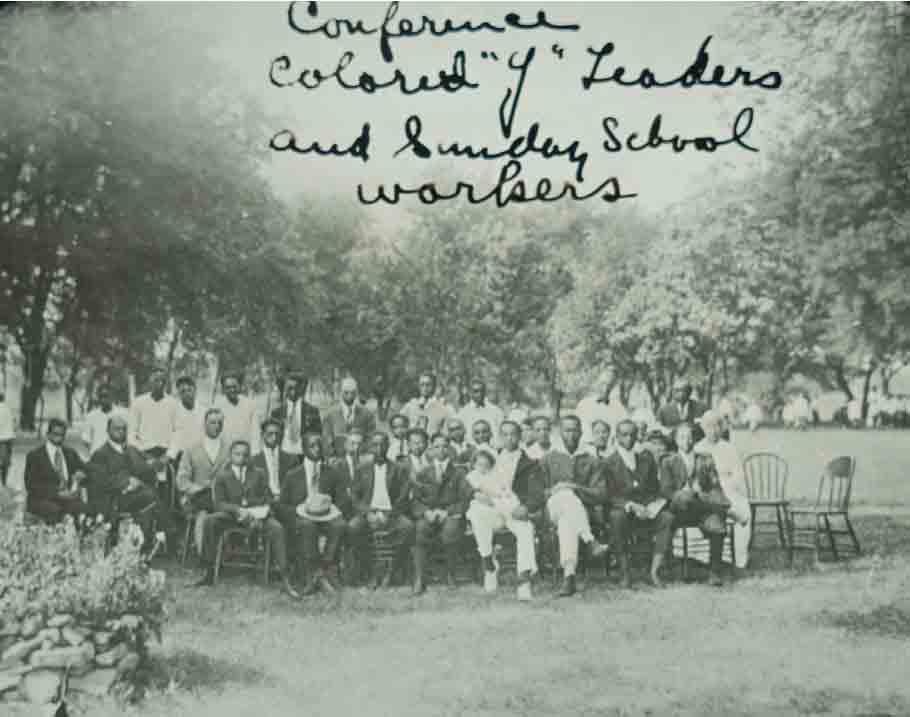 Conference
Colored "Y" Leaders
and Sunday School
workers